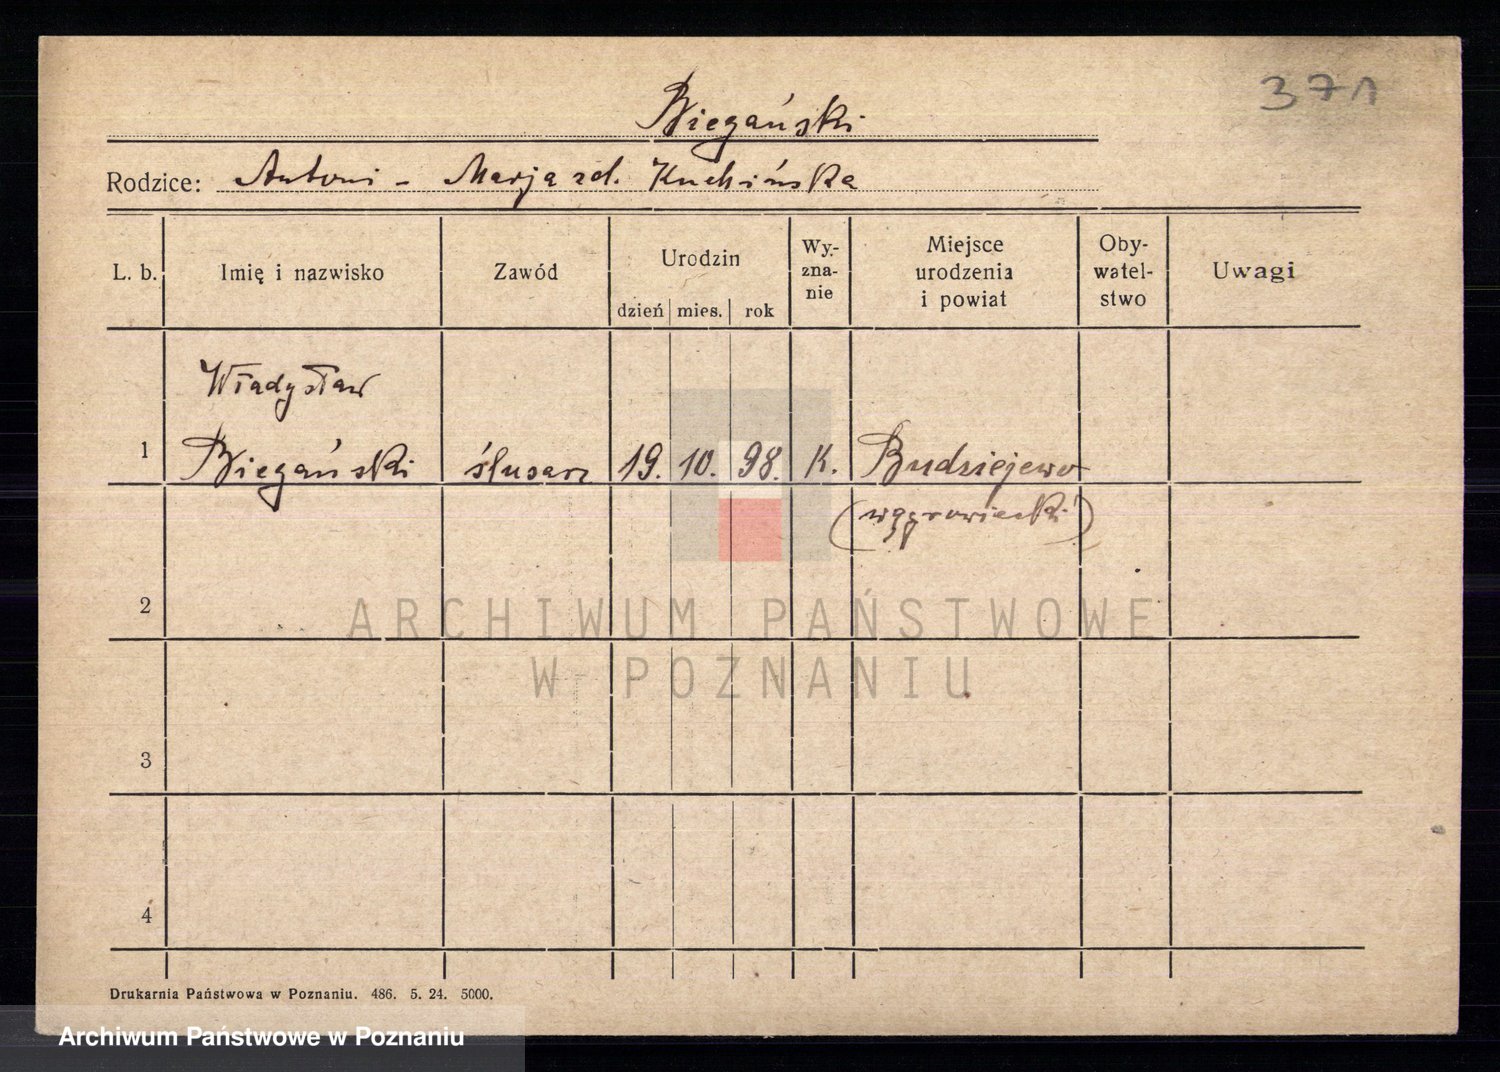 371
Biegański
Rodzice: Antoni - Marja zd. Kuchińska
L. b. Imię i nazwisko Zawód Urodzin dzień mies. rok Wy-zna-nie Miejsce urodzenia i powiat Oby-watel-stwo Uwagi
Władysław
1 Biegański ślusarz 19. 10. 98. K. Budziejewo
(wągrowiecki)
2
ARCHIWUM PAŃSTWOWE
W POZNANIU
3
4
Drukarnia Państwowa w Poznaniu. 486. 5. 24. 5000.
Archiwum Państwowe w Poznaniu